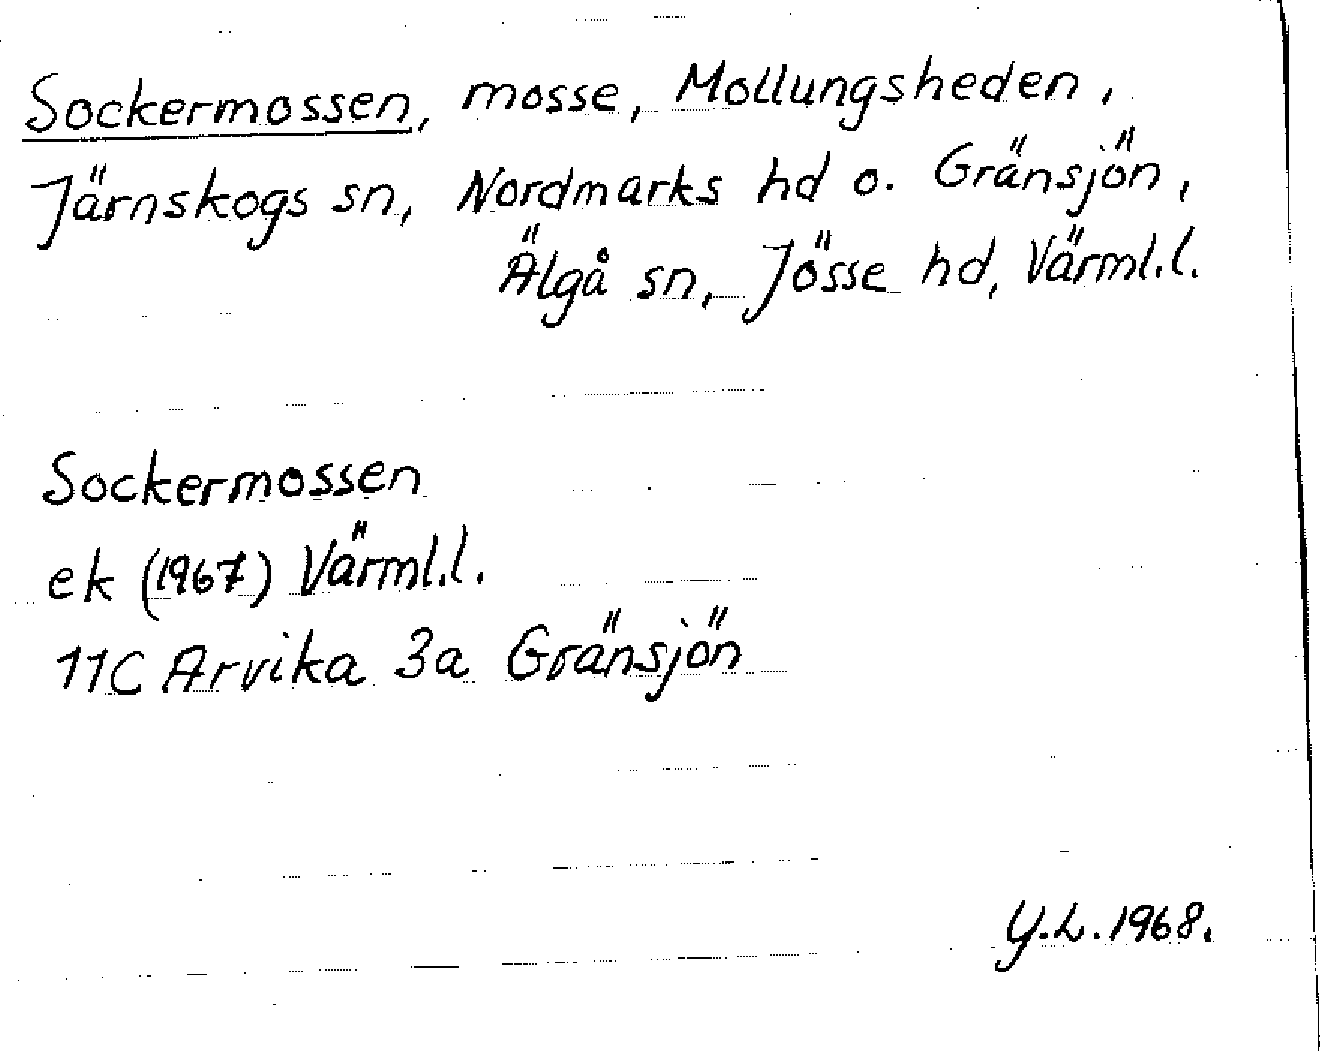 Sockermossen, mosse, Mollungsheden,
Järnskogs sn, Nordmarks hd o. Gränsjön,
Älgå sn, Jösse hd, Värml.l.
Sockermossen
ek (1967) Värml.l.
11C Arvika 3a Gränsjön
Y.L. 1968.